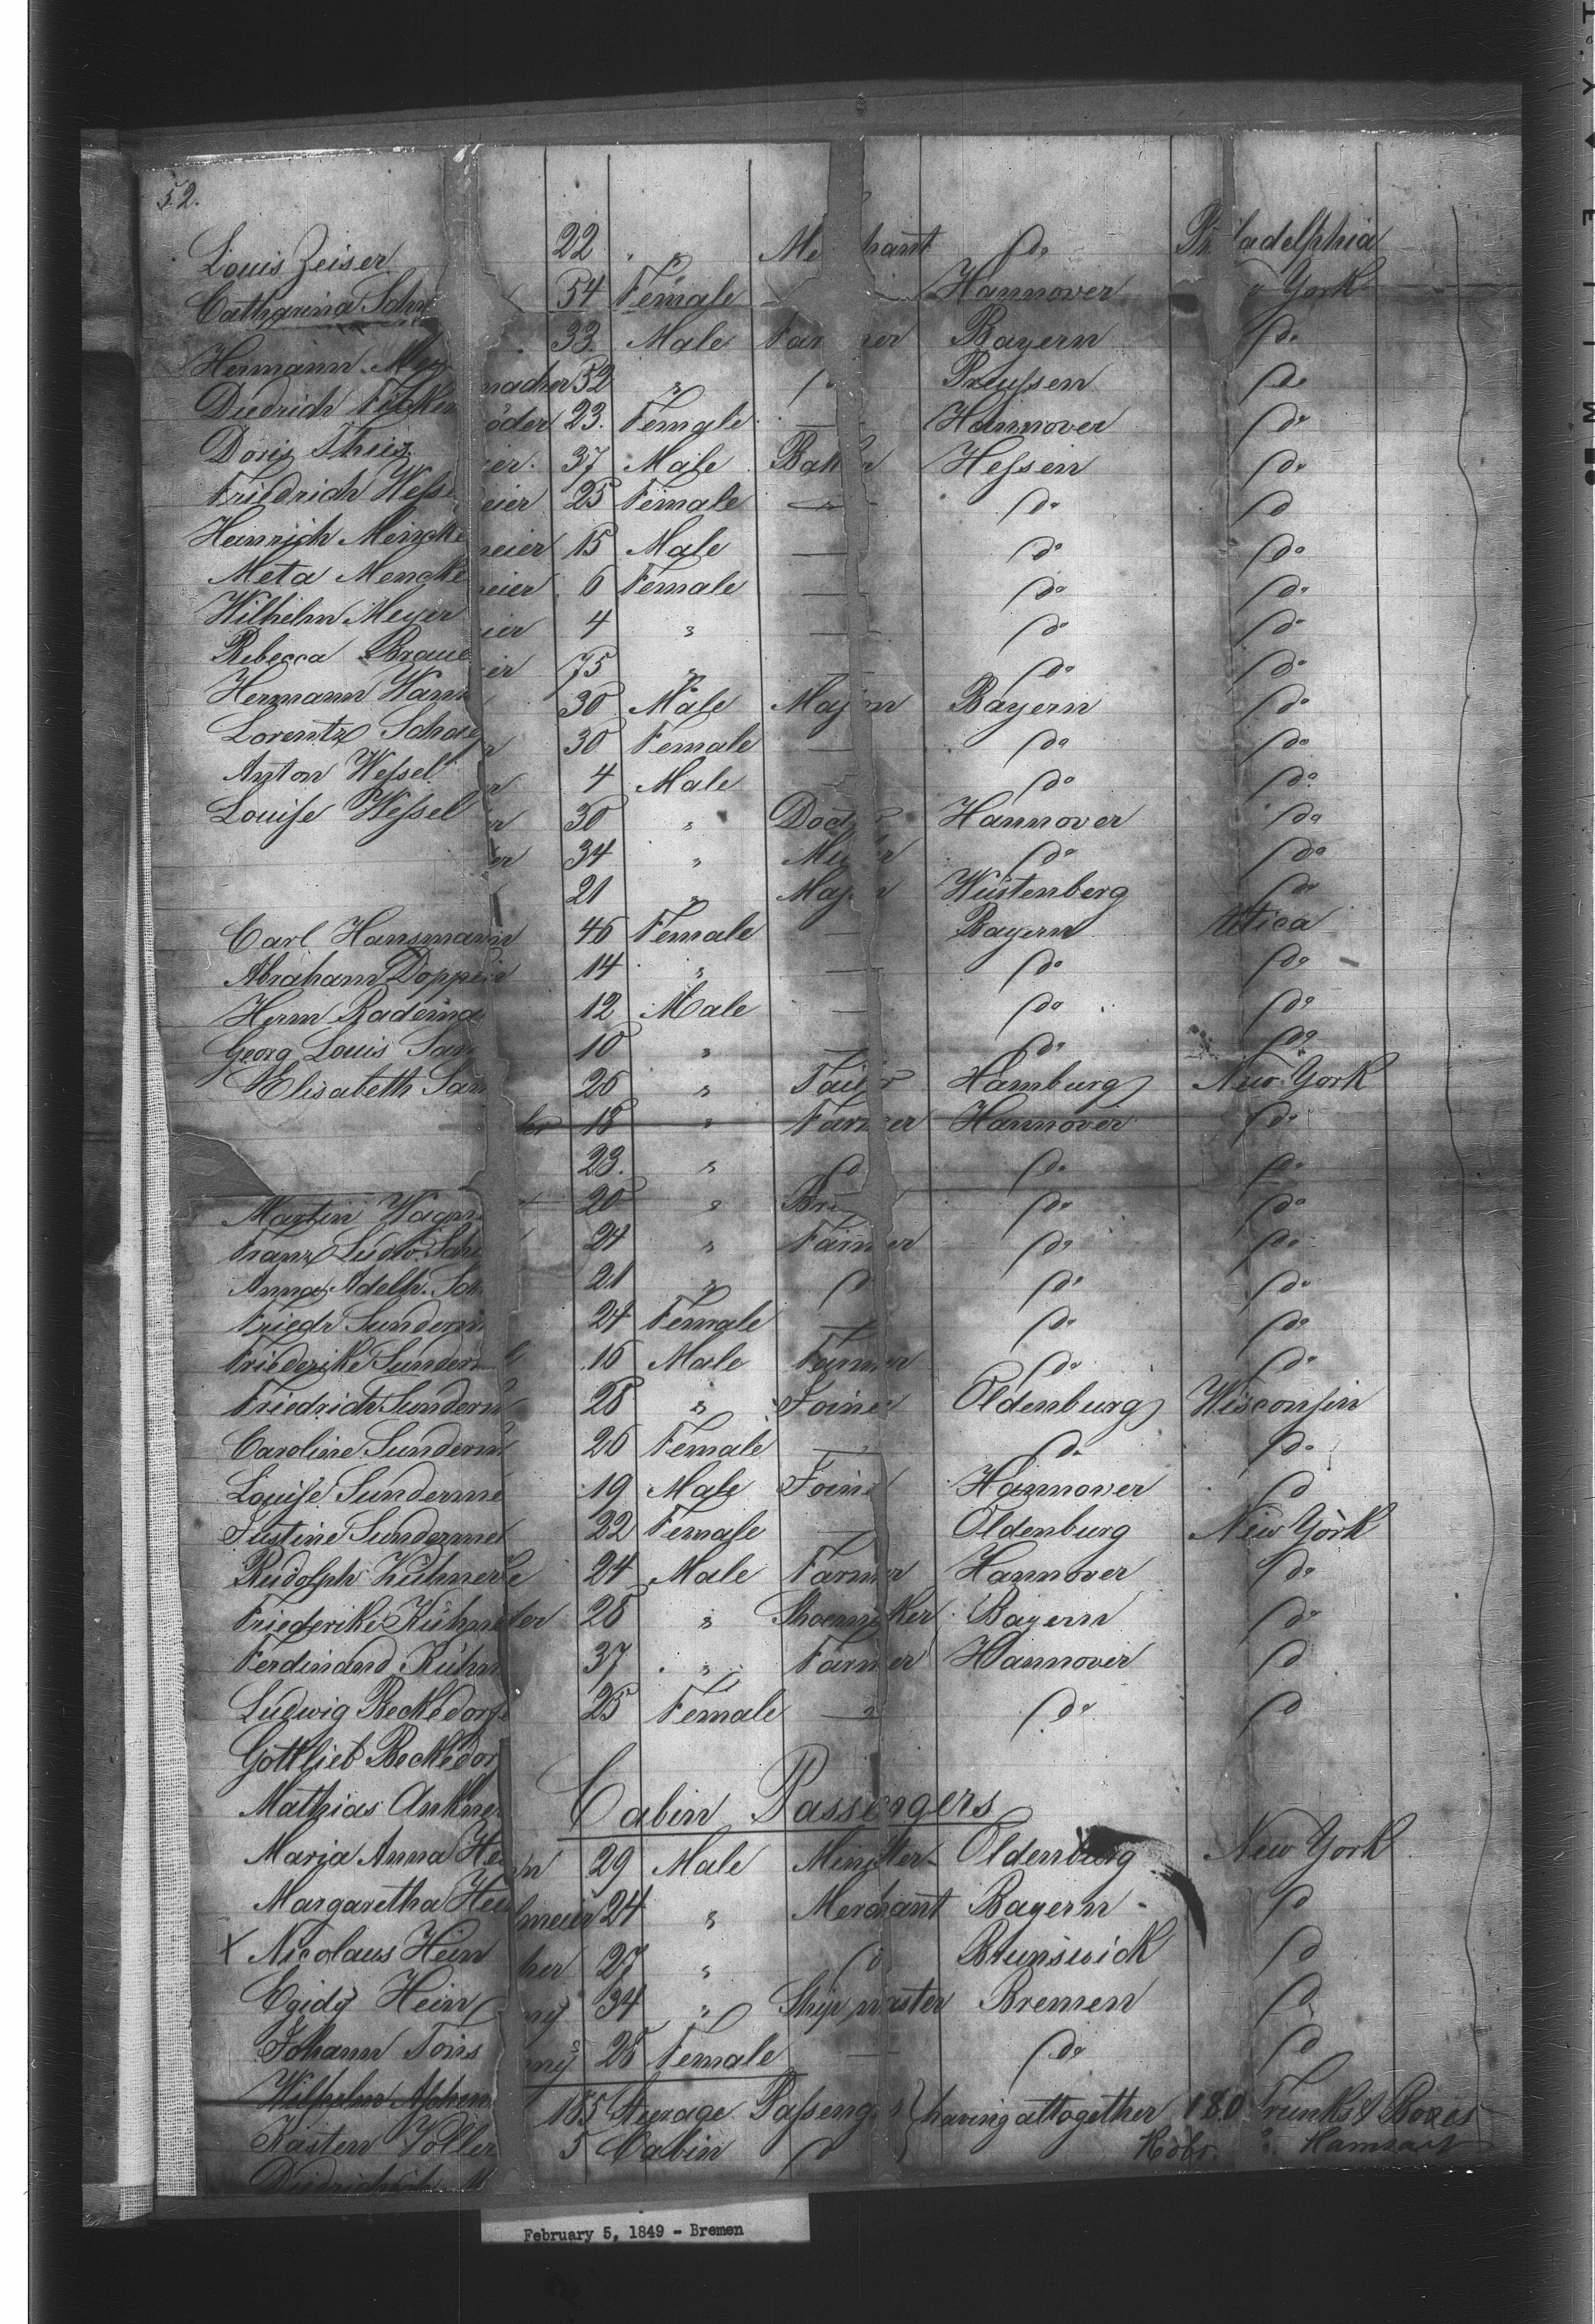 52.
Louis Zeiser 22 " Me hant do Ph ladelphia
Catharina Schr 54 Female — Hannover York
Hermann Mey 33 Male Far er Bayern do
Diedrich macher 52 " do Preussen do
Doris Thies öder 23. Female — Hannover do
Friedrich Wesse ier. 37 Male Bak r Hessen do
Heinrich Mencke eier 25 Female — do do
Meta Mencke eier 15 Male — do do
Wilhelm Meyer eier 6 Female — do do
Rebecca Braue ier 4 " — do do
Hermann Wam ier 75 " — do do
Lorentz Schae 30 Male Mason Bayern do
Anton Wessel r 30 Female — do do
Louise Wessel r 4 Male do do
r 30 " Doct Hannover do
er 34 " do do
21 " Mason Würtenberg do
Carl Hansmann 46 Female — Bayern Utica
Abraham Doppei 14 " — do do
Herm Radema 12 Male — do do
Georg Louis Sar 10 " — do do
Elisabeth Sar 26 " Tailor Hamburg New York
ler 18 " Farmer Hannover do
23. " do do do
Martin Wagn 20 " Br do do
Franz Ludw. Sch 24 " Farmer do do
Anna Adelh. Sch 21 " do do do
Friedr Sunderm 24 Female — do do
Friederike Sunderm 16 Male Farmer do do
Friedrich Sunderm 28 " Joiner Oldenburg Wisconsin
Caroline Sunderm 26 Female — do do
Louise Sunderme 19 Male Joine Hannover do
Justine Sundermei 22 Female — Oldenburg New York
Rudolph Kühne 24 Male Farmer Hannover do
Friederike Kühne ler 28 " Shoemaker Bayern do
Ferdinand Kühn 37 " Farmer Hannover do
Ludwig Beckedorf 25 Female — do do
Gottlieb Beckedor
Mathias Ankne
Cabin Passengers
Maria Anna He n 29 Male Minister Oldenburg New York
Margaretha Hei lmeier 24 " Merchant Bayern do
X Nicolaus Hein her 27 " do Brunswick do
Egidy Hein ny 34 " Ship master Bremen do
Johann Tons ny 28 Female — do do
Wilhelm
185 Steerage Passengers } having altogether 180 Trunks & Boxes
Kasten Voller 5 Cabin do
Diedrich
February 5, 1849 - Bremen